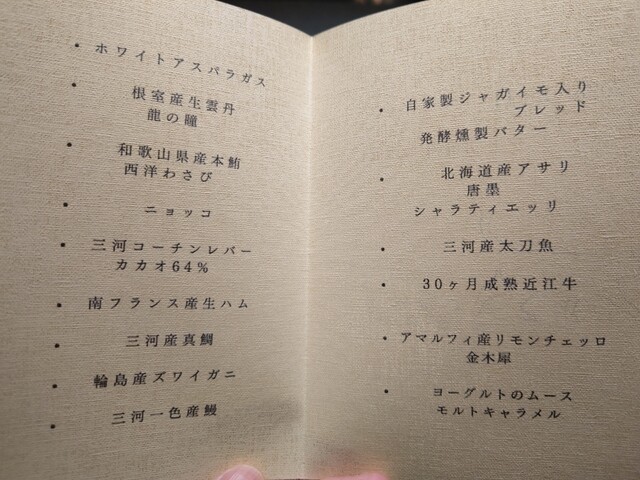 ・ホワイトアスパラガス
・根室産生雲丹
龍の瞳
・和歌山県産本鮪
西洋わさび
・ニョッコ
・三河コーチンレバー
カカオ64%
・南フランス産生ハム
・三河産真鯛
・輪島産ズワイガニ
・三河一色産鰻
・自家製ジャガイモ入り
ブレッド
発酵燻製バター
・北海道産アサリ
唐墨
シャラティエッリ
・三河産太刀魚
・30ヶ月成熟近江牛
・アマルフィ産リモンチェッロ
金木犀
・ヨーグルトのムース
モルトキャラメル